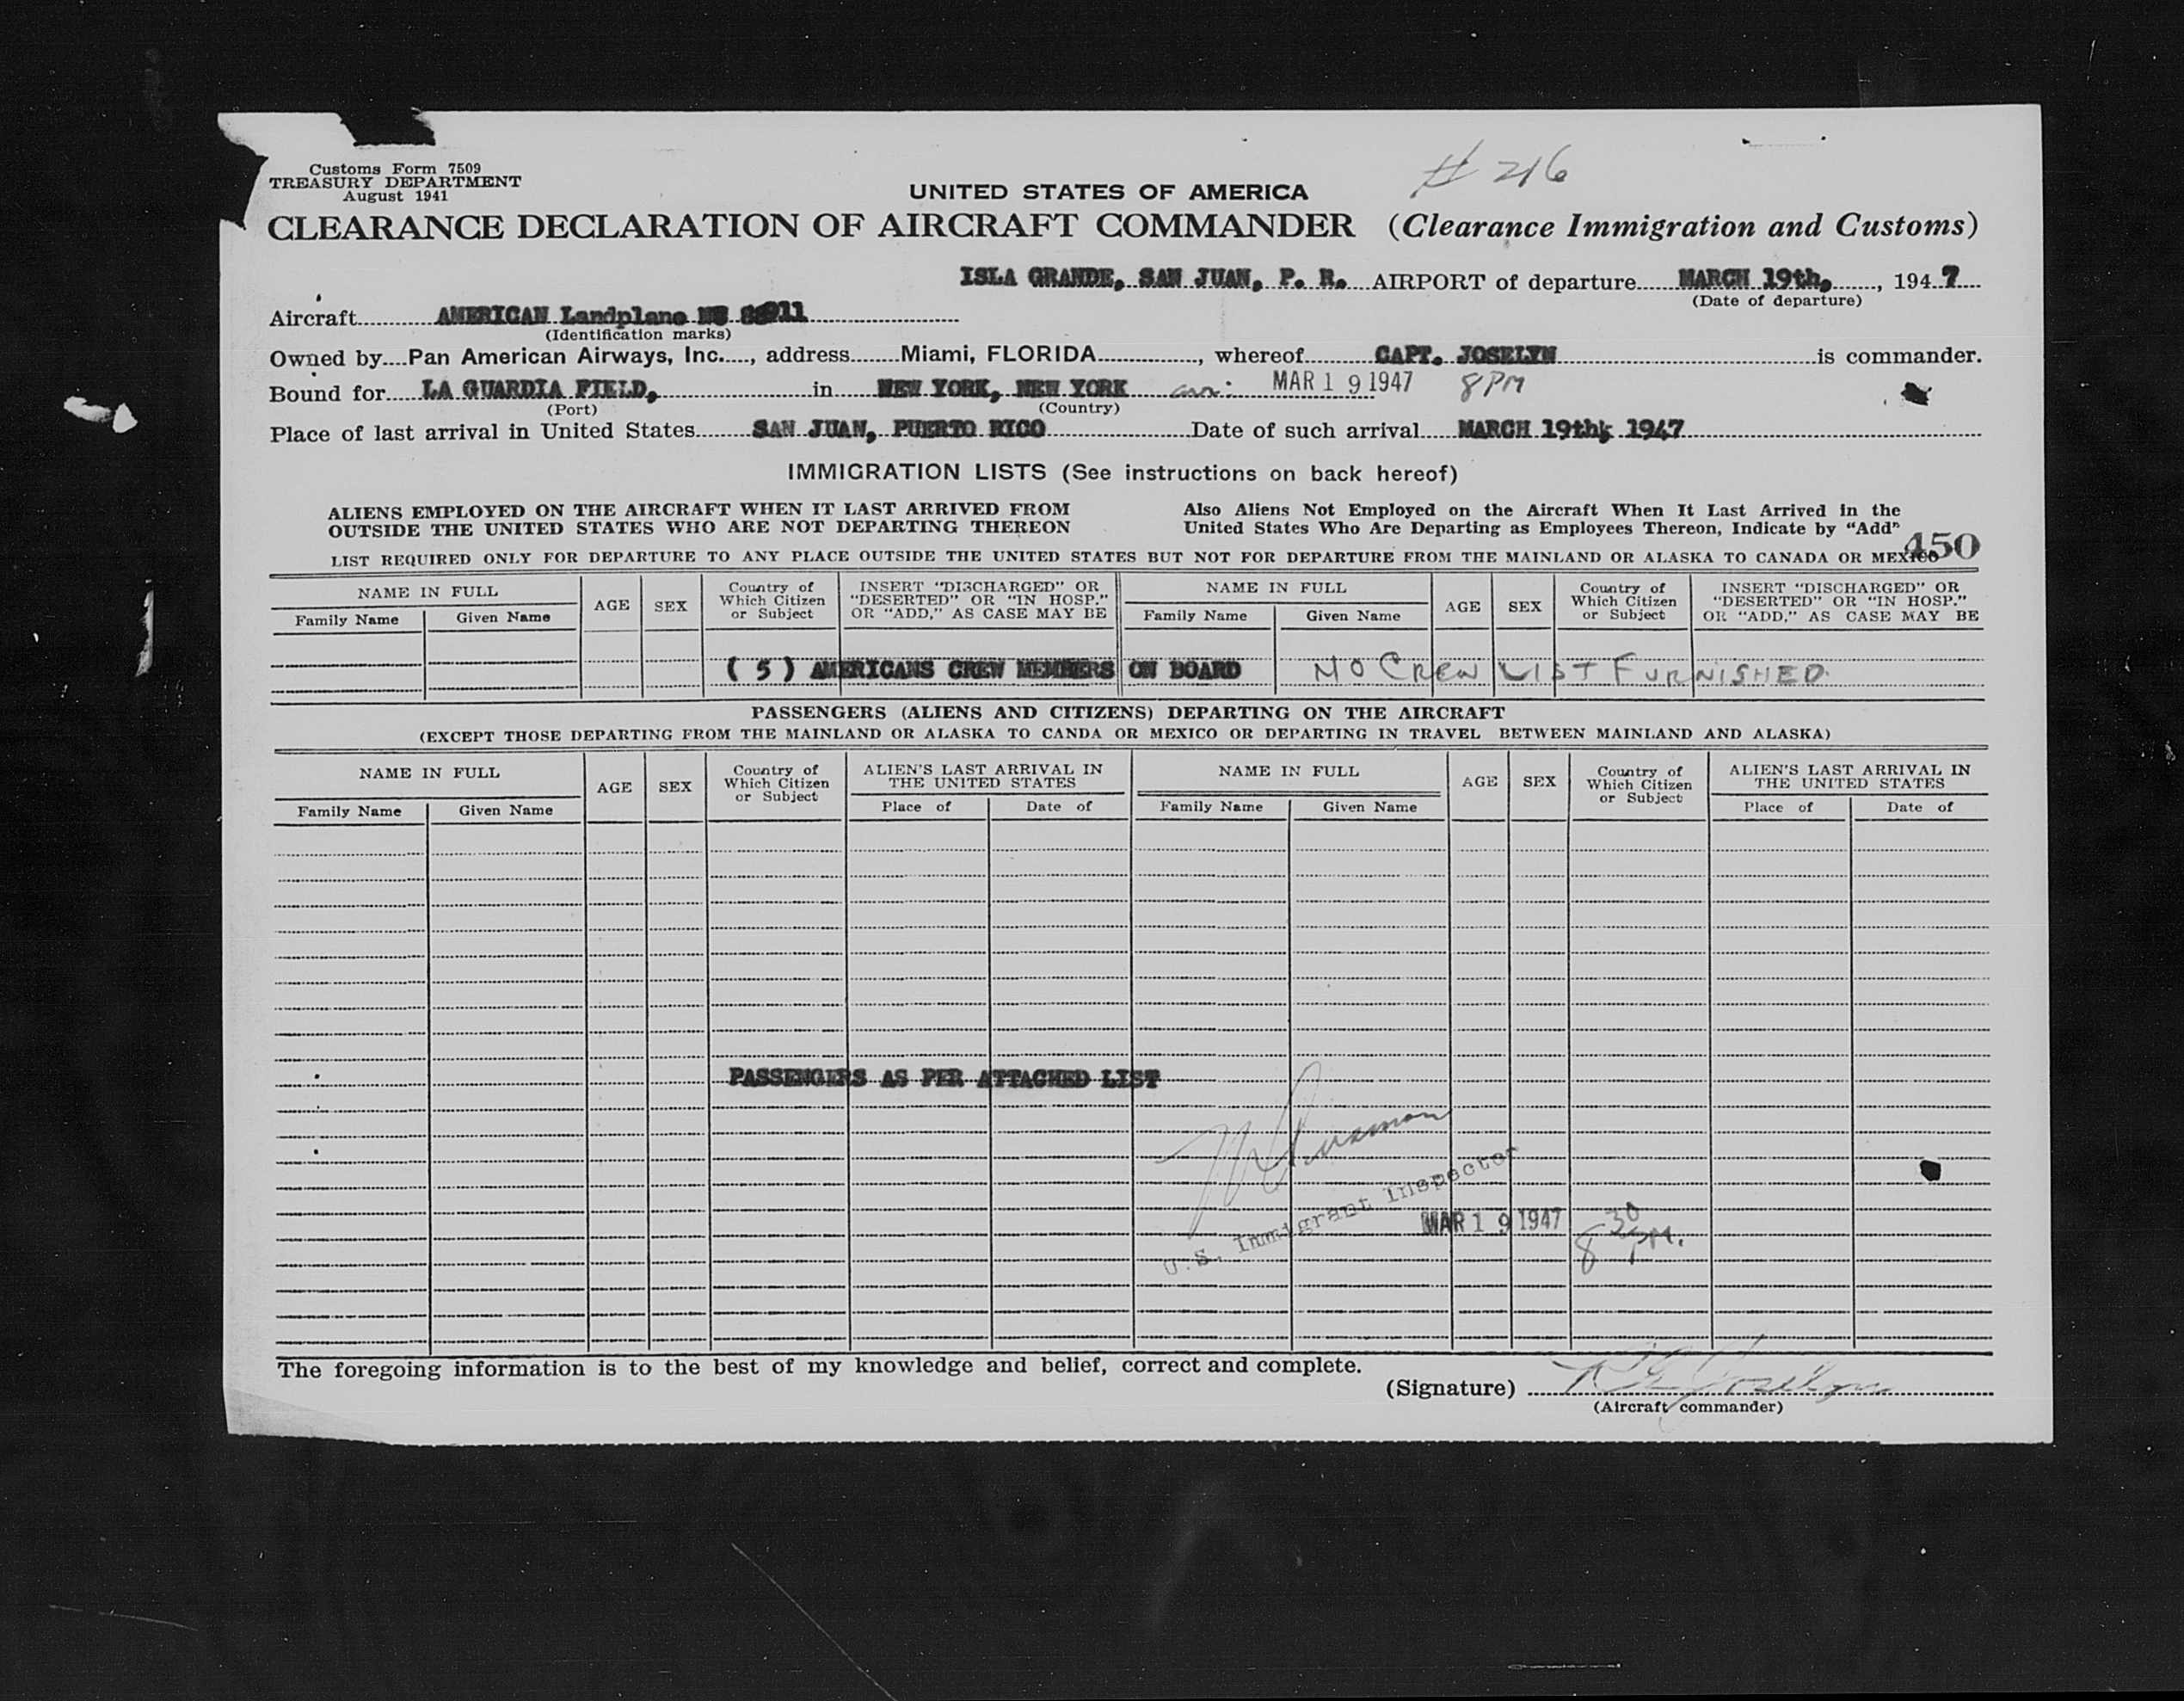 Customs Form 7509
TREASURY DEPARTMENT
August 1941
# 216
UNITED STATES OF AMERICA
CLEARANCE DECLARATION OF AIRCRAFT COMMANDER (Clearance Immigration and Customs)
ISLA GRANDE, SAN JUAN, P. R. AIRPORT of departure MARCH 19th, , 1947
(Date of departure)
Aircraft AMERICAN Landplane
(Identification marks)
Owned by Pan American Airways, Inc. , address Miami, FLORIDA , whereof CAPT. JOSELYN is commander.
Bound for LA GUARDIA FIELD, in NEW YORK, NEW YORK arr: MAR 19 1947 8PM
(Port) (Country)
Place of last arrival in United States SAN JUAN, PUERTO RICO Date of such arrival MARCH 19th, 1947
IMMIGRATION LISTS (See instructions on back hereof)
ALIENS EMPLOYED ON THE AIRCRAFT WHEN IT LAST ARRIVED FROM Also Aliens Not Employed on the Aircraft When It Last Arrived in the
OUTSIDE THE UNITED STATES WHO ARE NOT DEPARTING THEREON United States Who Are Departing as Employees Thereon, Indicate by "Add"
LIST REQUIRED ONLY FOR DEPARTURE TO ANY PLACE OUTSIDE THE UNITED STATES BUT NOT FOR DEPARTURE FROM THE MAINLAND OR ALASKA TO CANADA OR MEXICO 450
NAME IN FULL AGE SEX Country of Which Citizen or Subject INSERT "DISCHARGED" OR "DESERTED" OR "IN HOSP." OR "ADD," AS CASE MAY BE NAME IN FULL AGE SEX Country of Which Citizen or Subject INSERT "DISCHARGED" OR "DESERTED" OR "IN HOSP." OR "ADD," AS CASE MAY BE
Family Name Given Name Family Name Given Name
( 5 ) AMERICANS CREW MEMBERS ON BOARD NO CREW LIST FURNISHED
PASSENGERS (ALIENS AND CITIZENS) DEPARTING ON THE AIRCRAFT
(EXCEPT THOSE DEPARTING FROM THE MAINLAND OR ALASKA TO CANDA OR MEXICO OR DEPARTING IN TRAVEL BETWEEN MAINLAND AND ALASKA)
NAME IN FULL AGE SEX Country of Which Citizen or Subject ALIEN'S LAST ARRIVAL IN THE UNITED STATES NAME IN FULL AGE SEX Country of Which Citizen or Subject ALIEN'S LAST ARRIVAL IN THE UNITED STATES
Family Name Given Name Place of Date of Family Name Given Name Place of Date of
PASSENGERS AS PER ATTACHED LIST
U.S. Immigrant Inspector
MAR 19 1947 8 30 PM.
The foregoing information is to the best of my knowledge and belief, correct and complete.
(Signature) Joselyn
(Aircraft commander)